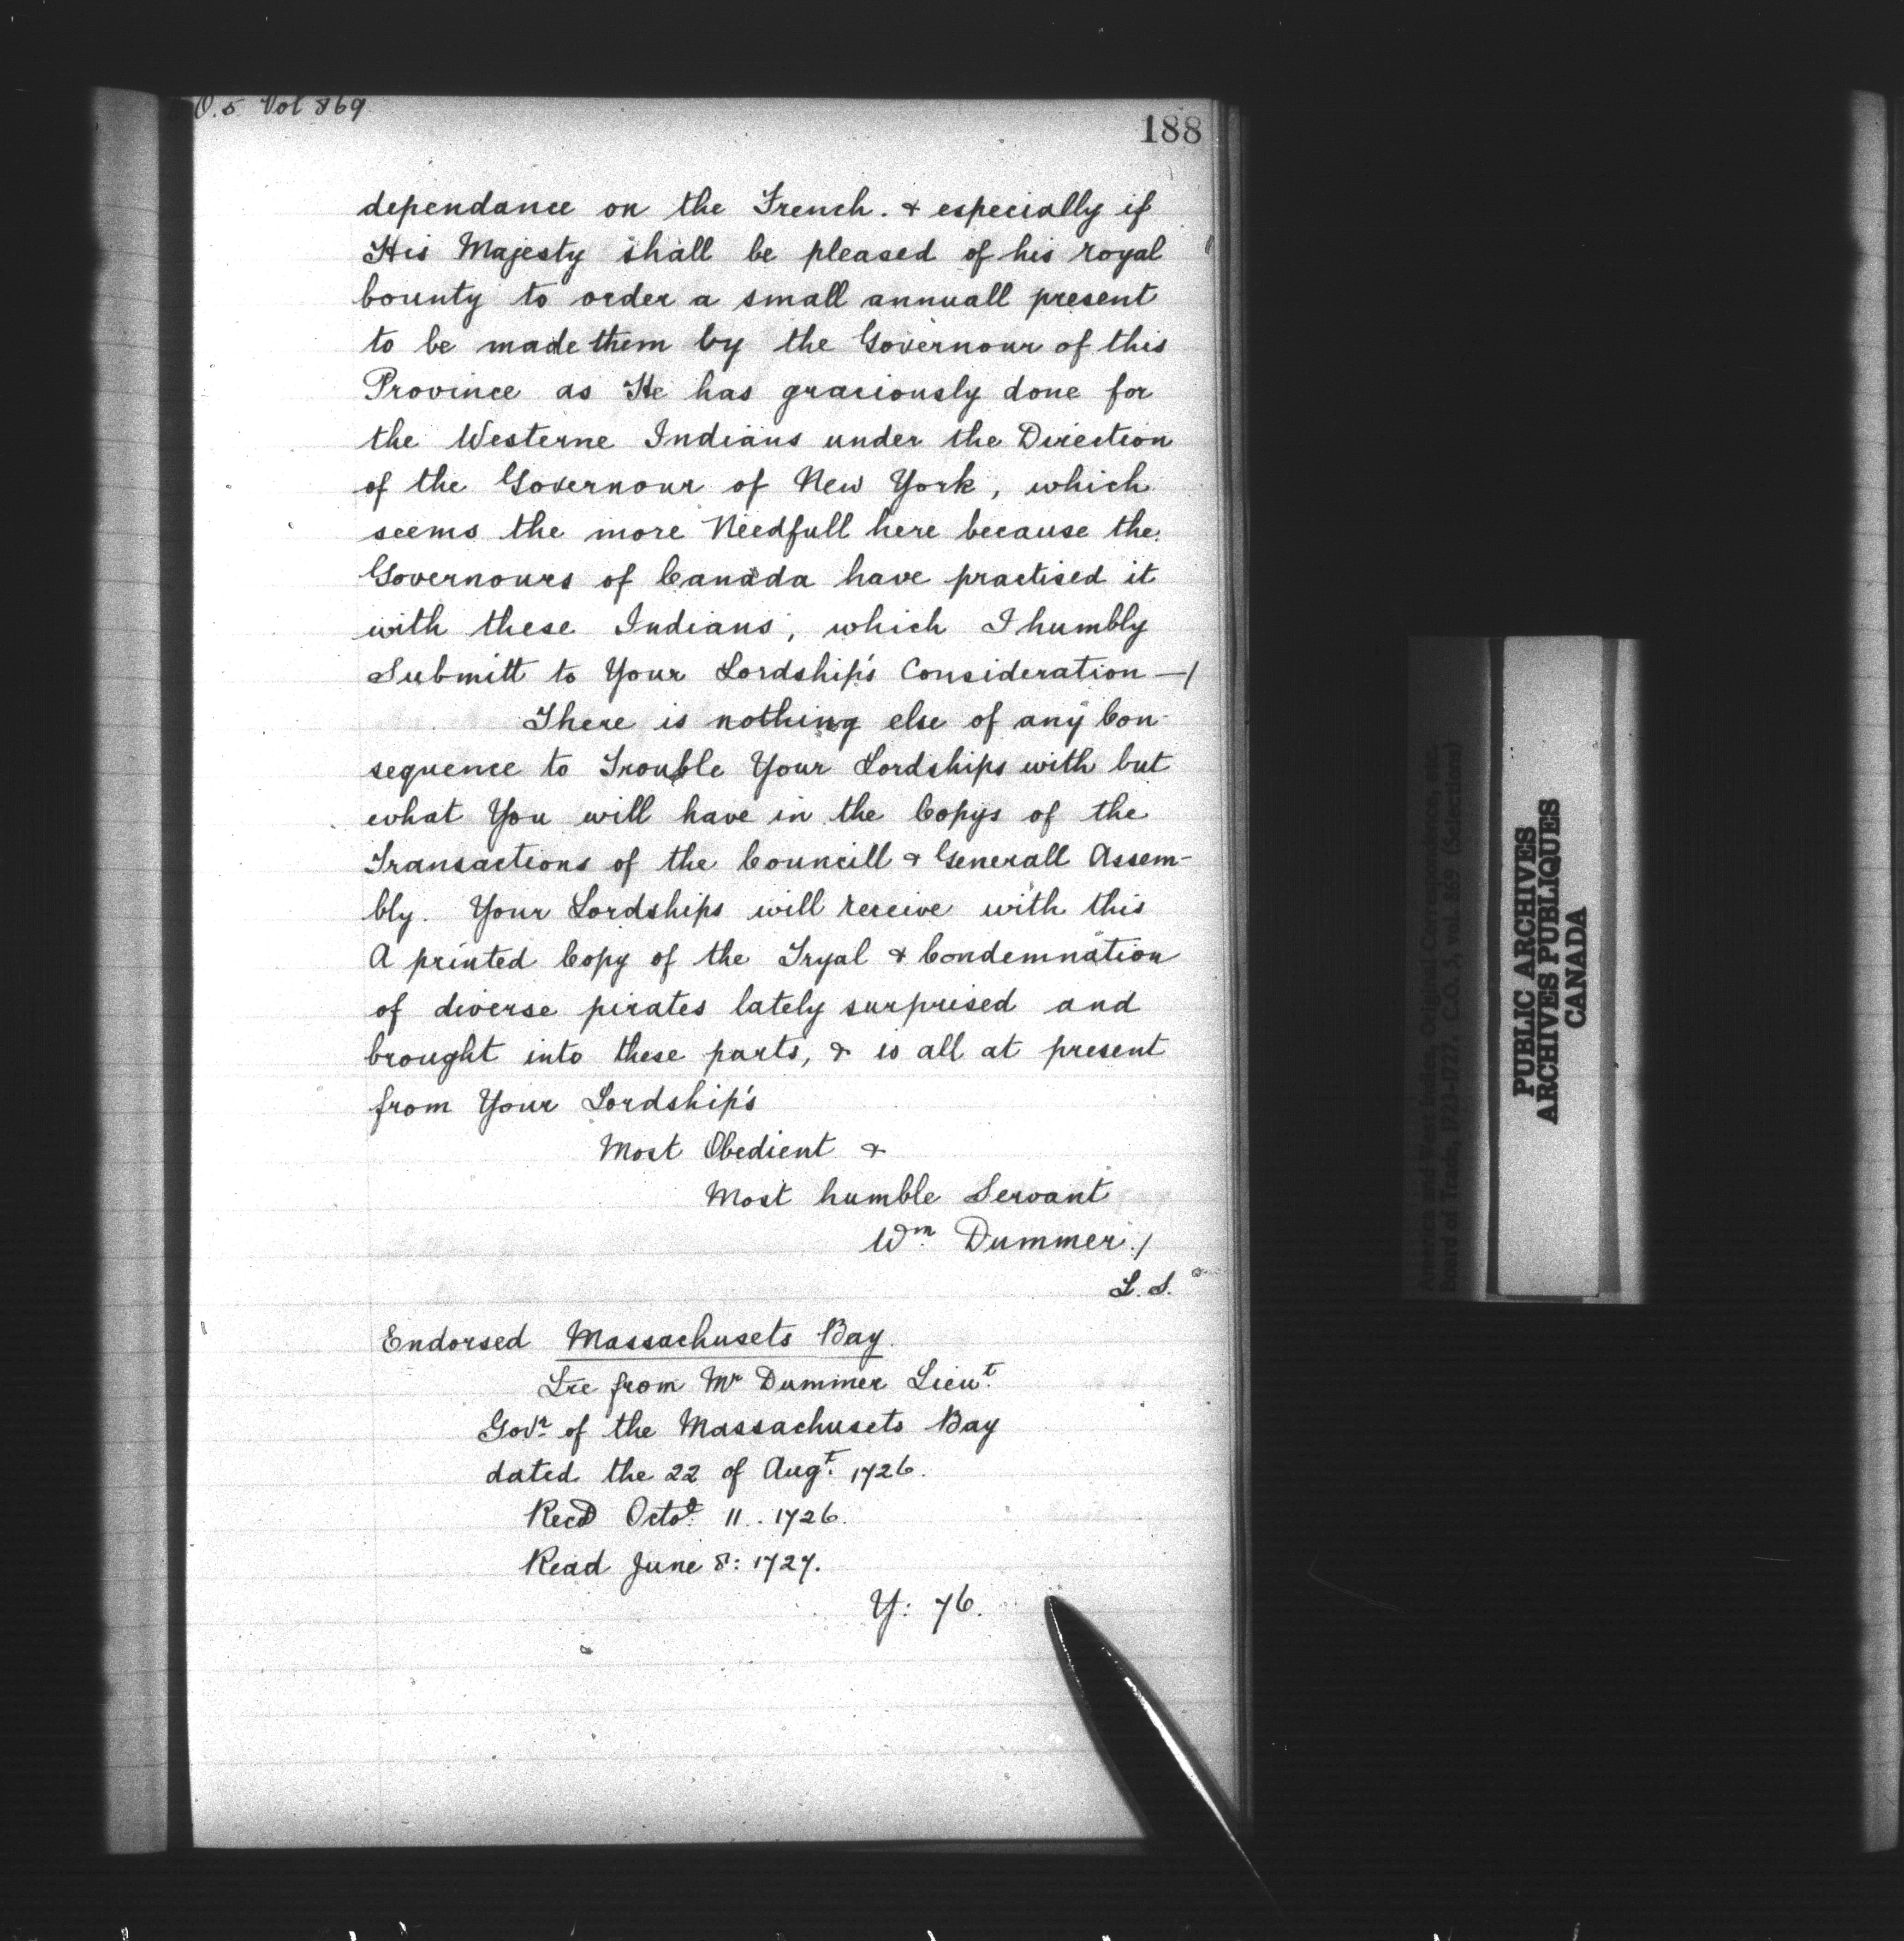 O.5 Vol 869
188
dependance on the French. & especially if
His Majesty shall be pleased of his royal
bounty to order a small annuall present
to be made them by the Governour of this
Province as He has graciously done for
the Westerne Indians under the Direction
of the Governour of New York, which
seems the more Needfull here because the
Governours of Canada have practised it
with these Indians, which I humbly
Submitt to Your Lordship's Consideration —/
There is nothing else of any Con-
sequence to Trouble Your Lordships with but
what You will have in the Copys of the
Transactions of the Councill & Generall Assem-
bly. Your Lordships will receive with this
A printed Copy of the Tryal & Condemnation
of diverse pirates lately surprised and
brought into these parts, & is all at present
from Your Lordship's
Most Obedient &
Most humble Servant
Wm. Dummer./
L.S.
Endorsed Massachusets Bay.
Lre from Mr Dummer Lieut.
Govr. of the Massachusets Bay
dated the 22 of Augt. 1726.
Recd Octor. 11. 1726.
Read June 8: 1727.
Y: 76.
America and West Indies, Original Correspondence, etc.
Board of Trade, 1723-1777. C.O. 5, vol. 869 (Selections)
PUBLIC ARCHIVES
ARCHIVES PUBLIQUES
CANADA